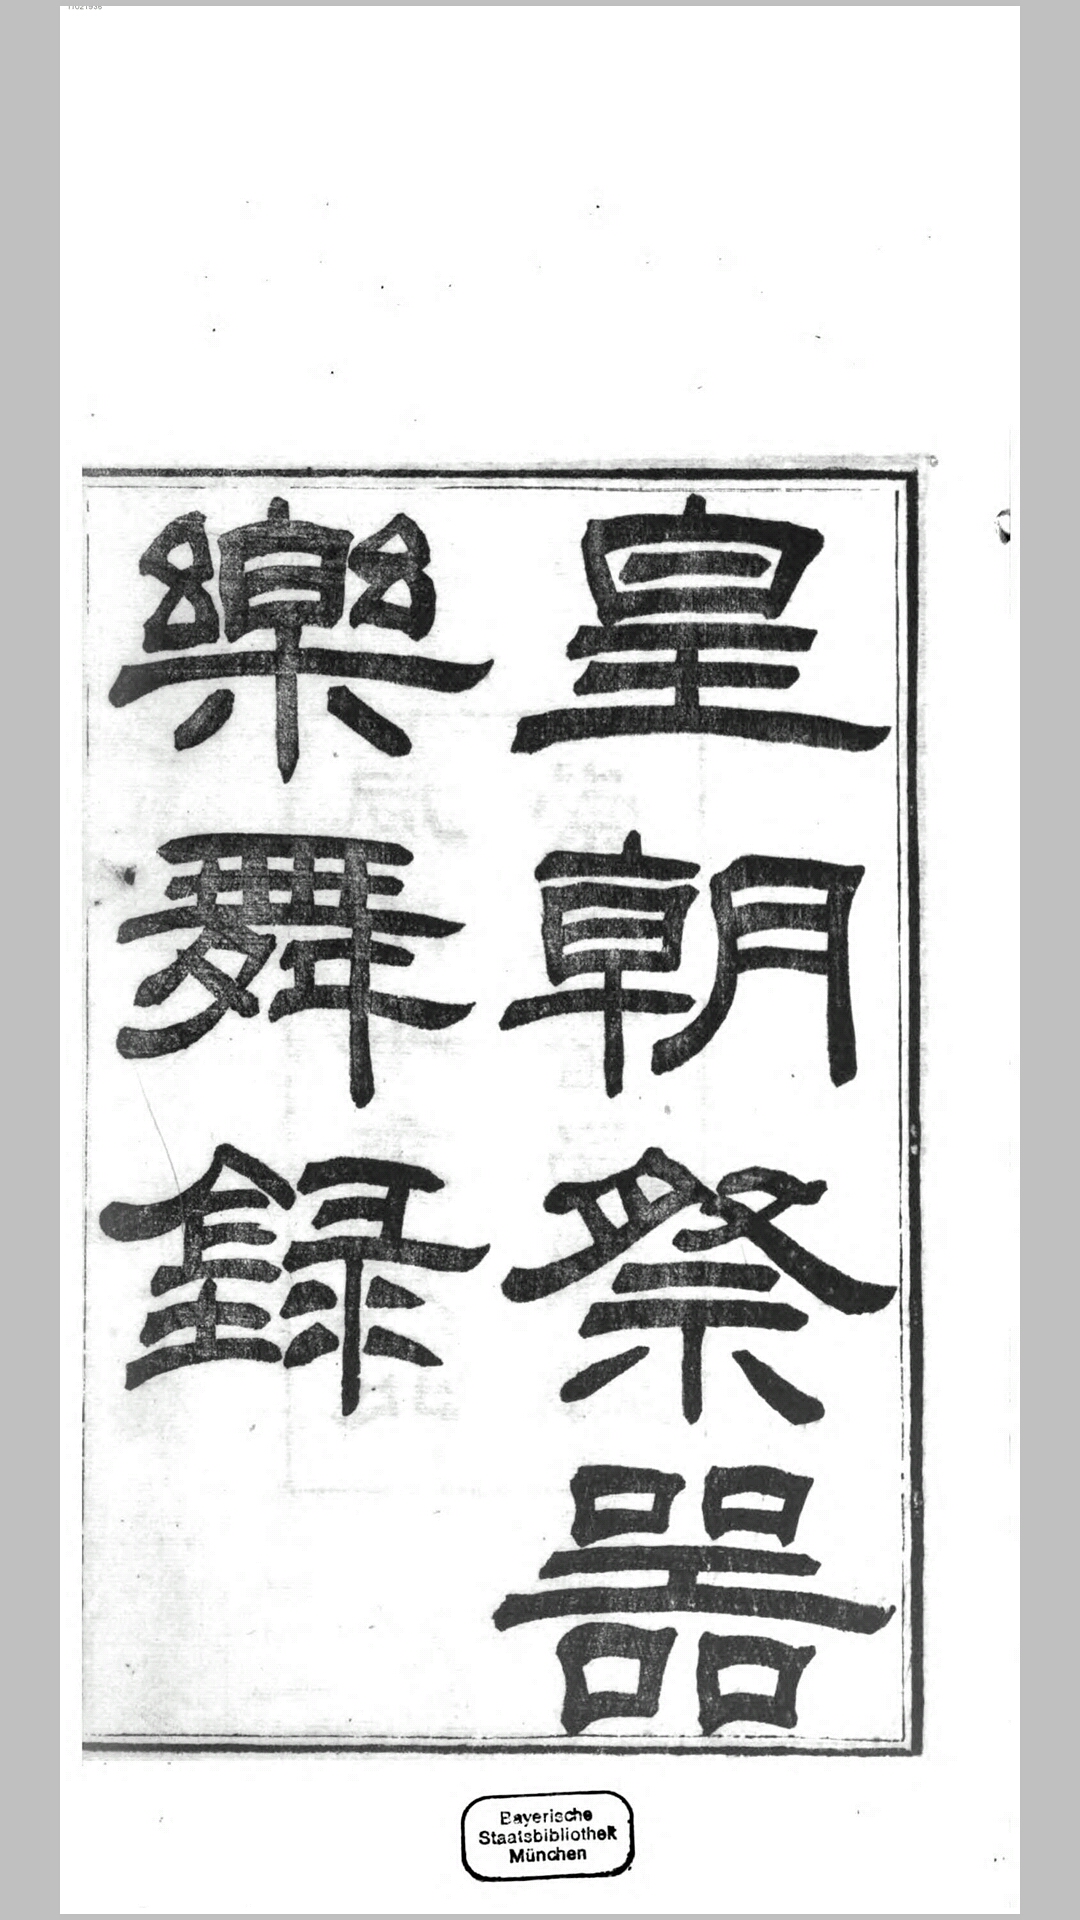 皇朝祭器
樂舞録
Bayerische
Staatsbibliothek
München